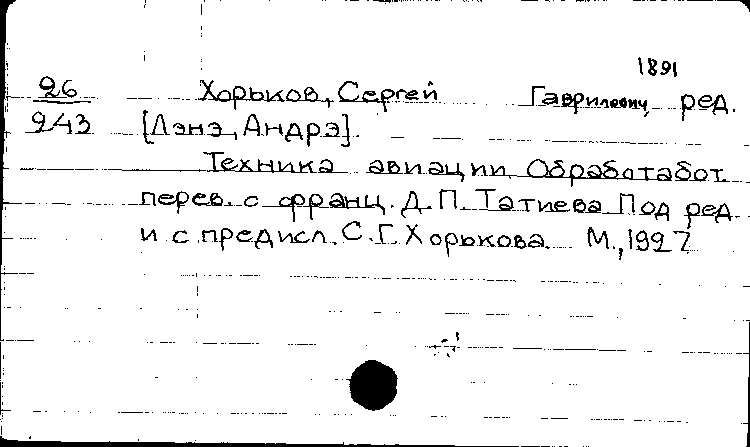 1891
26 Хорьков, Сергей Гаврилович, ред.
243 [Лэнэ, Андрэ].
Техника авиации. Обработабот.
перев. с франц. Д.П. Татиева Под ред
и с предисл. С.Г. Хорькова. М., 1927